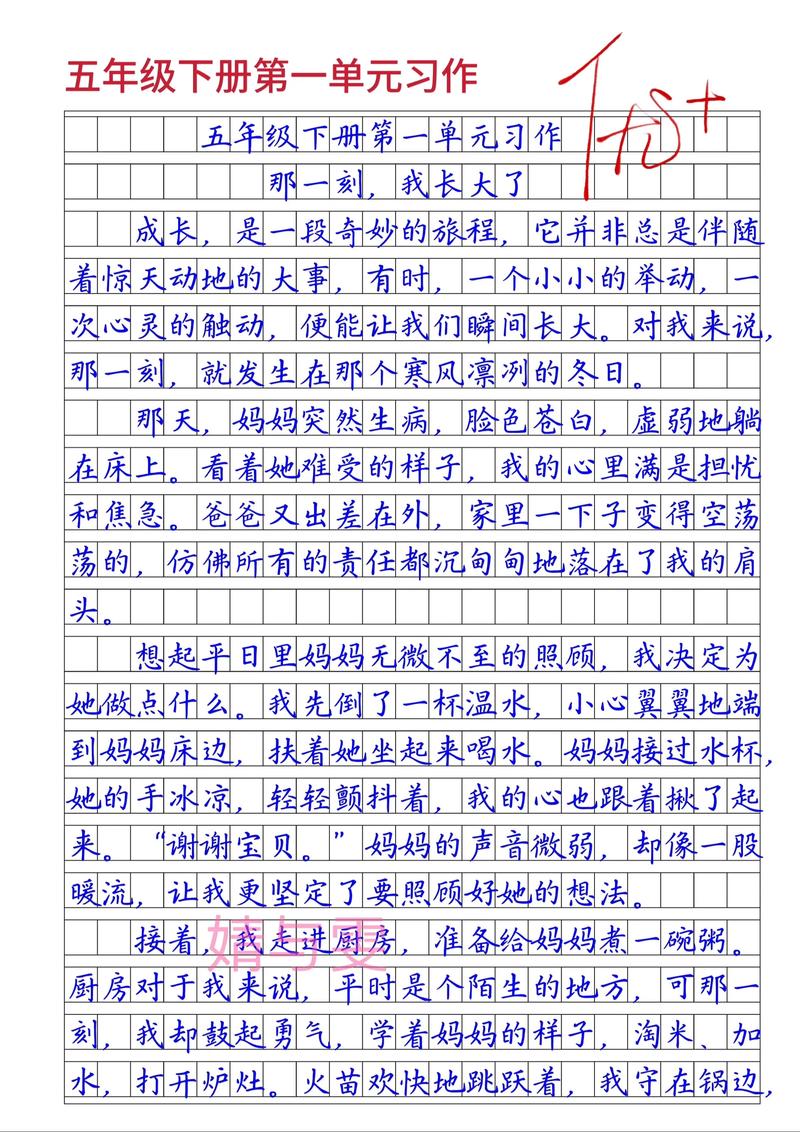 五年级下册第一单元习作
优+
五年级下册第一单元习作
那一刻，我长大了
成长，是一段奇妙的旅程，它并非总是伴随
着惊天动地的大事，有时，一个小小的举动，一
次心灵的触动，便能让我们瞬间长大。对我来说，
那一刻，就发生在那个寒风凛冽的冬日。
那天，妈妈突然生病，脸色苍白，虚弱地躺
在床上。看着她难受的样子，我的心里满是担忧
和焦急。爸爸又出差在外，家里一下子变得空荡
荡的，仿佛所有的责任都沉甸甸地落在了我的肩
头。
想起平日里妈妈无微不至的照顾，我决定为
她做点什么。我先倒了一杯温水，小心翼翼地端
到妈妈床边，扶着她坐起来喝水。妈妈接过水杯，
她的手冰凉，轻轻颤抖着，我的心也跟着揪了起
来。“谢谢宝贝。”妈妈的声音微弱，却像一股
暖流，让我更坚定了要照顾好她的想法。
接着，我走进厨房，准备给妈妈煮一碗粥。
婧与雯
厨房对于我来说，平时是个陌生的地方，可那一
刻，我却鼓起勇气，学着妈妈的样子，淘米、加
水，打开炉灶。火苗欢快地跳跃着，我守在锅边，